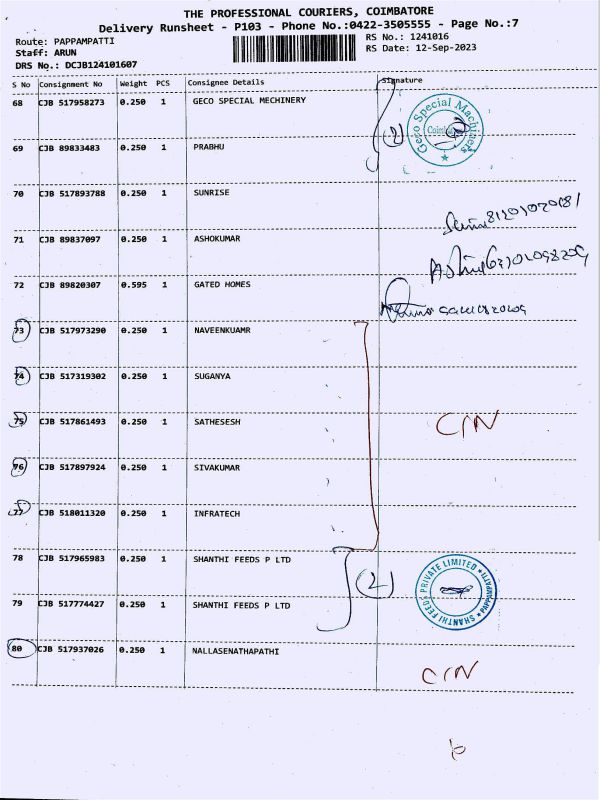 THE PROFESSIONAL COURIERS, COIMBATORE
Delivery Runsheet - P103 - Phone No.:0422-3505555 - Page No.:7
Route: PAPPAMPATTI
Staff: ARUN
DRS No.: DCJB124101607
RS No.: 1241016
RS Date: 12-Sep-2023
S No Consignment No Weight PCS Consignee Details Signature
68 CJB 517958273 0.250 1 GECO SPECIAL MECHINERY
69 CJB 89833483 0.250 1 PRABHU
(2)
Geco Special Machiners
70 CJB 517893788 0.250 1 SUNRISE
71 CJB 89837097 0.250 1 ASHOKUMAR
72 CJB 89820307 0.595 1 GATED HOMES
73 CJB 517973290 0.250 1 NAVEENKUAMR
74 CJB 517319302 0.250 1 SUGANYA
75 CJB 517861493 0.250 1 SATHESESH
C/N
76 CJB 517897924 0.250 1 SIVAKUMAR
77 CJB 518011320 0.250 1 INFRATECH
78 CJB 517965983 0.250 1 SHANTHI FEEDS P LTD
(2)
SHANTHI FEEDS PRIVATE LIMITED
PAPPAMPATTI
79 CJB 517774427 0.250 1 SHANTHI FEEDS P LTD
80 CJB 517937026 0.250 1 NALLASENATHAPATHI
C/N